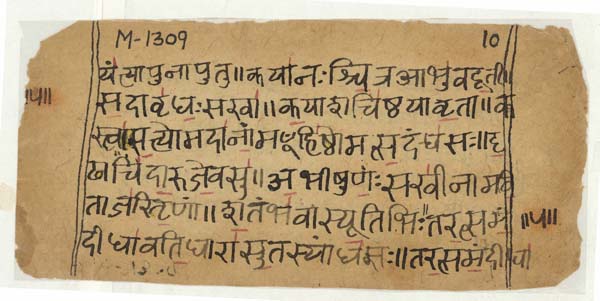 M-1309 10
यं त्या पुनापुतु॥ कयानः श्चित्र आभुवदूती॥
सदावृधः सखा॥ कया शचिष्ठयावृता॥ क
स्त्वा सत्यो मदानां मꣳहिष्ठो मत्सदंधसः॥ दृ
ढाचिदारुजेवसु॥ अभीषुणः सखीनामवि
ताजरितृणां॥ शतंभवास्यूतिभिः॥ तरत्समं
॥५॥
॥५॥
दीधावति धारासुतस्यांधसः॥ तरत्समंदीधा